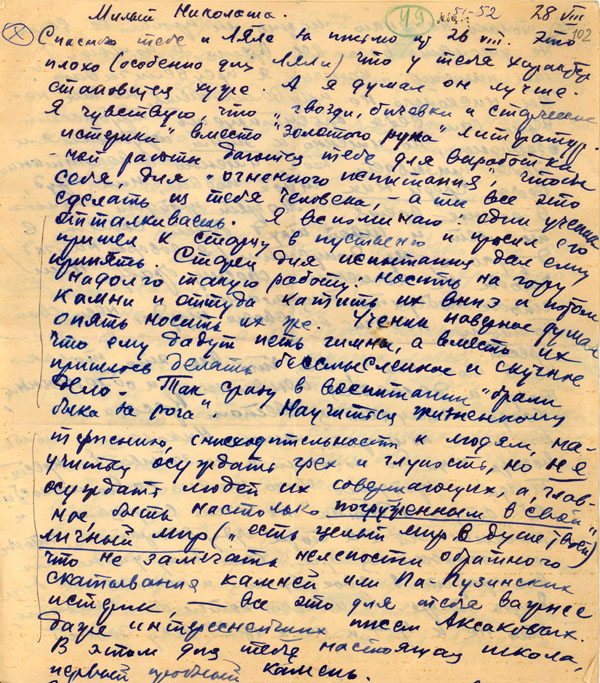 Милый Николаша.
49
51-52
28 VIII
102
Спасибо тебе и Ляле за письмо из 26 VIII. Это
плохо (особенно для Ляли) что у тебя характер
становится хуже. А я думал он лучше.
Я чувствую, что „гвозди, бичевки и старческие
истерики" вместо "золотого руна" литератур-
ной работы даются тебе для выработки
себя, для „огненного испытания", чтобы
сделать из тебя человека, – а ты все это
отталкиваешь. Я вспоминаю: один ученик
пришел к старцу в пустыню и просил его
принять. Старец для испытания дал ему
надолго такую работу: носить на гору
камни и оттуда катить их вниз и потом
опять носить их же. Ученик наверное думал
что ему дадут петь гимны, а вместо их
пришлось делать бессмысленное и скучное
дело. Так сразу в воспитании "брали
быка за рога". Научиться жизненному
терпению, снисходительности к людям, на-
учиться осуждать грех и глупость, но не
осуждать людей их совершающих, а, глав-
ное, быть настолько погруженным в свой
личный мир („есть целый мир в душе твоей")
что не замечать нелепости обратного
скатывания камней или Па-Пузинских
истерик, — все это для тебя важнее
даже интереснейших писем Аксаковых.
В этом для тебя настоящая школа,
первый пробный камень.